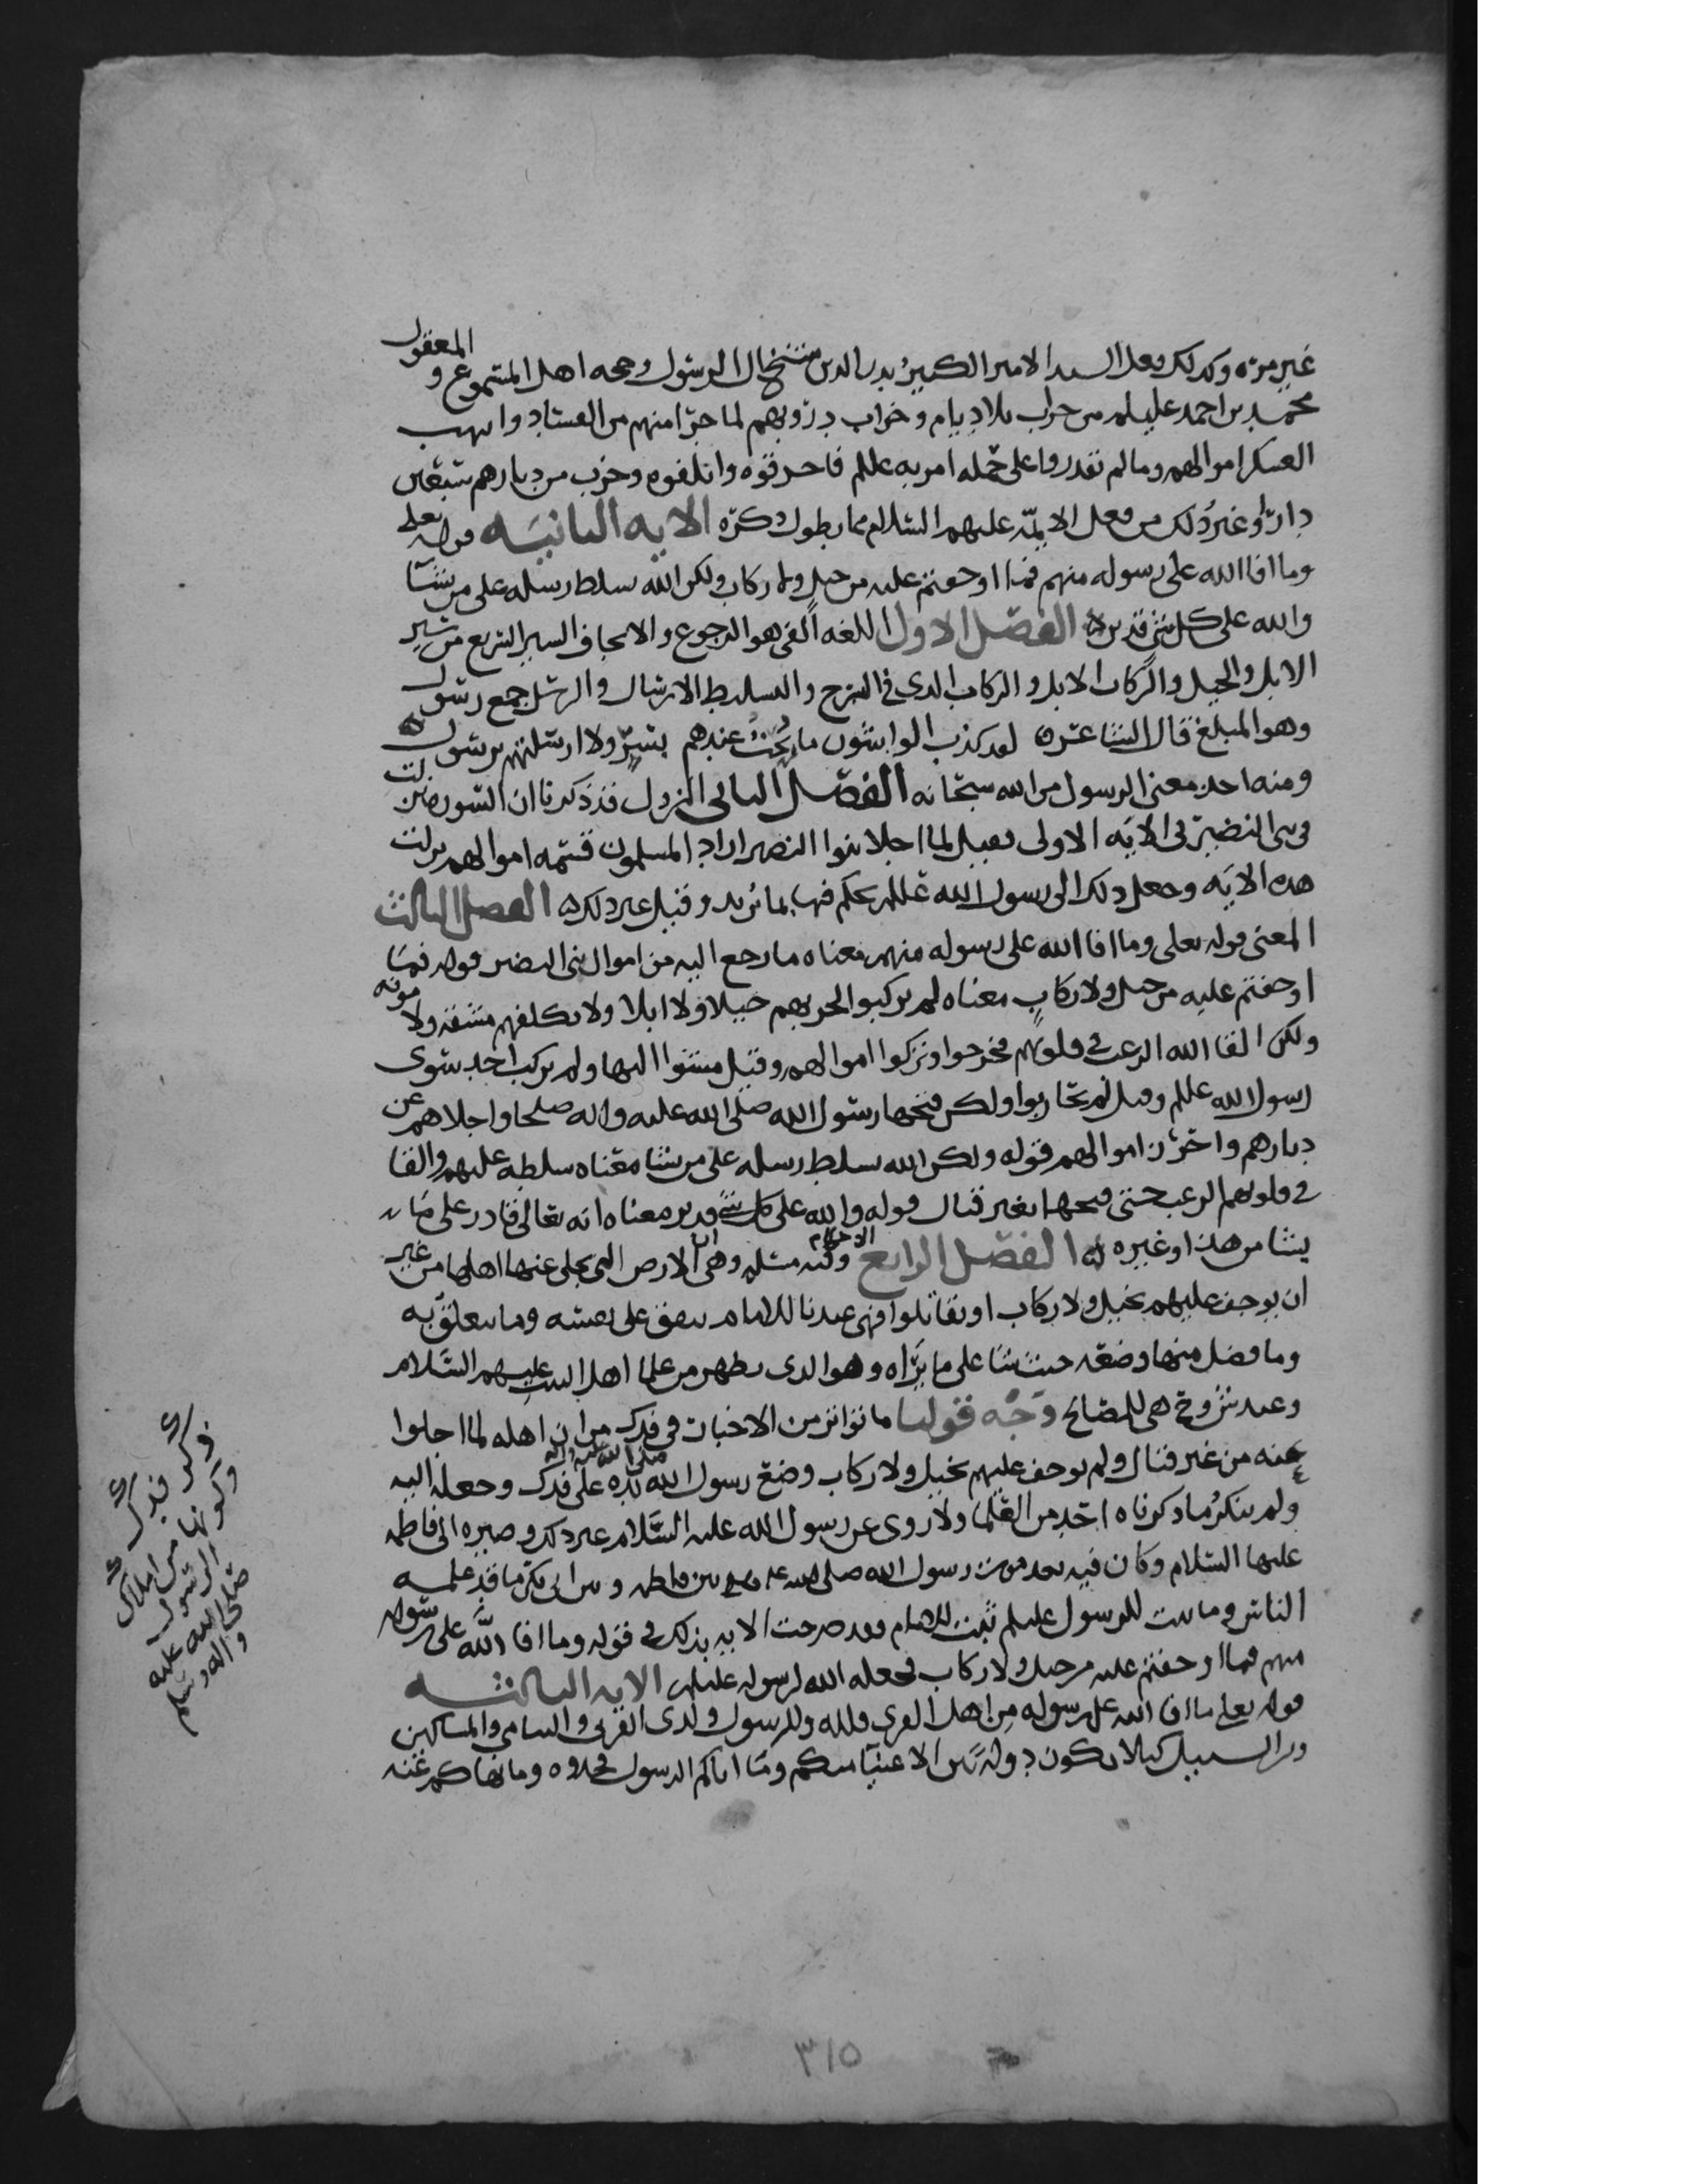 المعقول
غير مرة وكذلك فعل السيد الامير الكبير بدر الدين شيخ ال الرسول وحجه اهل المسموع و
محمد بن احمد عليلم من خراب بلاد يام وخراب دروبهم لما جرا منهم من الفساد وانهب
العسكر اموالهم وما لم يقدروا على حمله امر به عللم فاحرقوه واتلفوه وخرب من ديارهم سبعين
دارا وغير ذلك من فعل الايمة عليهم السلام مما يطول ذكره الايه الثانيه قوله تعلى
وما افا الله على رسوله منهم فما اوجفتم عليه من خيل ولا ركاب ولكن الله سلط رسله على من يشا
والله على كل شي قدير الفصل الاول اللغه الفي هو الرجوع والايجاف السير السريع من سير
الابل والخيل والركاب الابل والركاب الذي في السرج والتسليط الارسال والرسل جمع رسول
وهو المبلغ قال الشاعر لقد كذب الواشون ما بحت عندهم بسر ولا ارسلتهم برسول
ومنه اخذ معنى الرسول من الله سبحانه الفصل الثاني النزول قد ذكرنا ان السوره نزلت
في بني النضير في الايه الاولى فقيل لما اجلا بنوا النضير اراد المسلمون قسمه اموالهم نزلت
هذه الايه وجعل ذلك الى رسول الله عللم يحكم فيها بما يريد وقيل غير ذلك الفصل الثالث
المعنى قوله تعلى وما افا الله على رسوله منهم معناه ما رجع اليه من اموال بني النضير قوله فما
اوجفتم عليه من خيل ولا ركاب معناه لم يركبوا لحربهم خيلا ولا ابلا ولا تكلفتم مشقه ولا مونه
ولكن القا الله الرعب في قلوبهم فخرجوا وتركوا اموالهم وقيل مشوا اليها ولم يركب احد سوى
رسول الله عللم وقيل لم يحاربوا ولكن فتحها رسول الله صلى الله عليه واله صلحا واجلاهم عن
ديارهم واخذ اموالهم قوله ولكن الله سلط رسله على من يشا معناه سلطه عليهم والقا
في قلوبهم الرعب حتى فتحها بغير قتال قوله والله على كل شي قدير معناه انه تعالى قادر على ما
يشا من هذا وغيره الفصل الرابع الاحكام وفيه مسله وهي ان الارض التي يجلى عنها اهلها من غير
ان يوجف عليهم بخيل ولا ركاب او يقاتلوا فهي عندنا للامام ينفق على نفسه وما يتعلق به
وما فضل منها وضعه حيث شا على ما يراه وهو الذي يظهر من علما اهل البيت عليهم السلام
وعند ش و ح هي للمصالح وجه قولنا ما تواتر من الاخبار في فدك من ان اهله لما اجلوا
عنه من غير قتال ولم يوجف عليهم بخيل ولا ركاب وضع رسول الله صلى الله عليه واله يده على فدك وجعله اليه
ولم ينكر ما ذكرناه احد من العلما ولا روى عن رسول الله عليه السلام غير ذلك وصيره الى فاطمه
عليها السلام وكان فيه بعد موت رسول الله صلى الله عليه وسلم بين فاطمه وبين ابي بكر ما قد علمه
الناس وما ثبت للرسول عليلم ثبت للامام وقد صرحت الايه بذلك في قوله وما افا الله على رسوله
منهم فما اوجفتم عليه من خيل ولا ركاب فجعله الله لرسوله عليلم الايه الثالثه
قوله تعلى ما افا الله على رسوله من اهل القرى فلله وللرسول ولذي القربى واليتامى والمساكين
وابن السبيل كيلا يكون دولة بين الاغنيا منكم وما اتاكم الرسول فخذوه وما نهاكم عنه
ذكر فدك
وكونها من املاك
الرسول
صلى الله عليه
واله وسلم
٣١٥